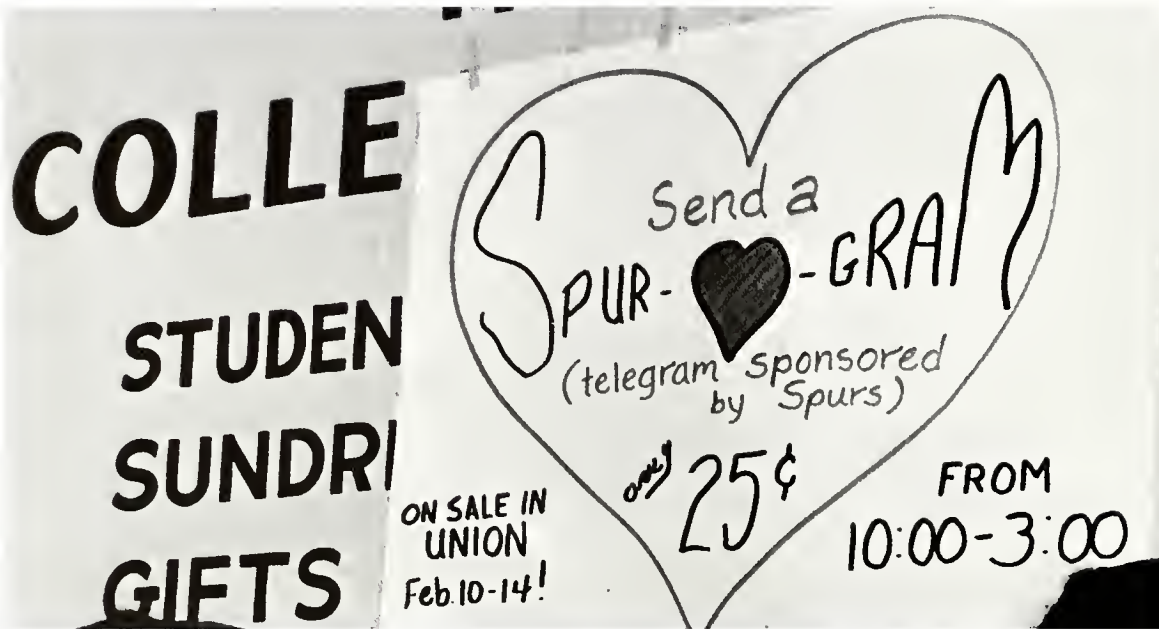 COLLE
STUDEN
SUNDRI
GIFTS
Send a
SPUR- -GRAM
(telegram sponsored
by Spurs)
only 25¢
ON SALE IN
UNION
Feb. 10-14!
FROM
10:00-3:00